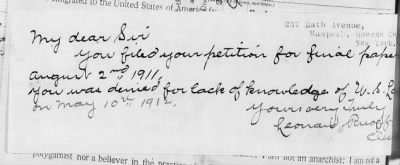 migrated to the United States of America
227 Bath Avenue,
Maspeth, Queens Co
New York,
My dear Sir
You filed your petition for final pape
August 2nd 1911,
you was denied for lack of knowledge of U.S.
on May 10th 191
Yours very truly
Leonard
polygamist nor a believer in the practice
I am not an anarchist; I am not a